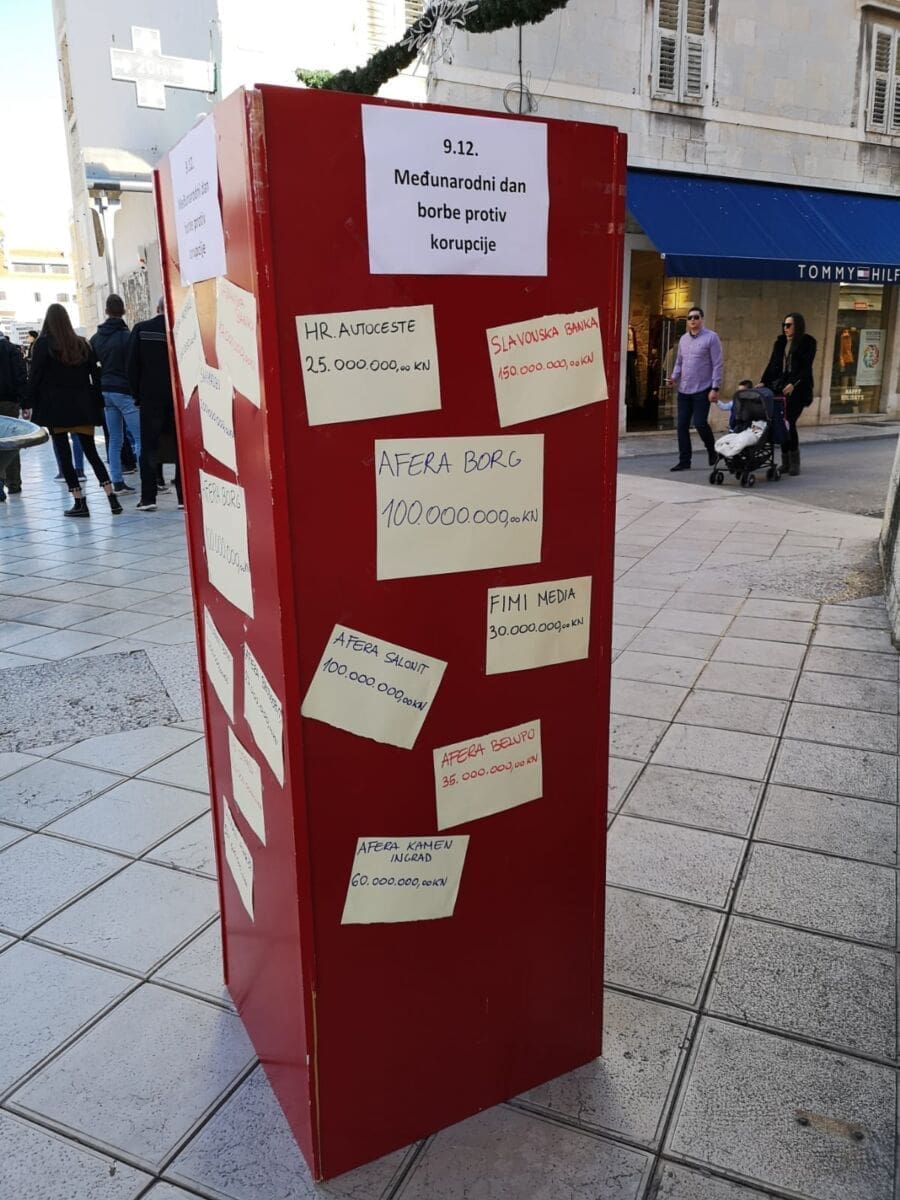 9.12.
Međunarodni dan
borbe protiv
korupcije
HR. AUTOCESTE
25.000.000,00 KN
SLAVONSKA BANKA
150.000.000,00 KN
AFERA BORG
100.000.000,00 KN
FIMI MEDIA
30.000.000,00 KN
AFERA SALONIT
100.000.000,00 KN
AFERA BELUPO
35.000.000,00 KN
AFERA KAMEN
INGRAD
60.000.000,00 KN
9.12.
Međunarodni dan
borbe protiv
korupcije
AFERA BORG
20m
TOMMY HILF
HAPPY
HOLIDAYS